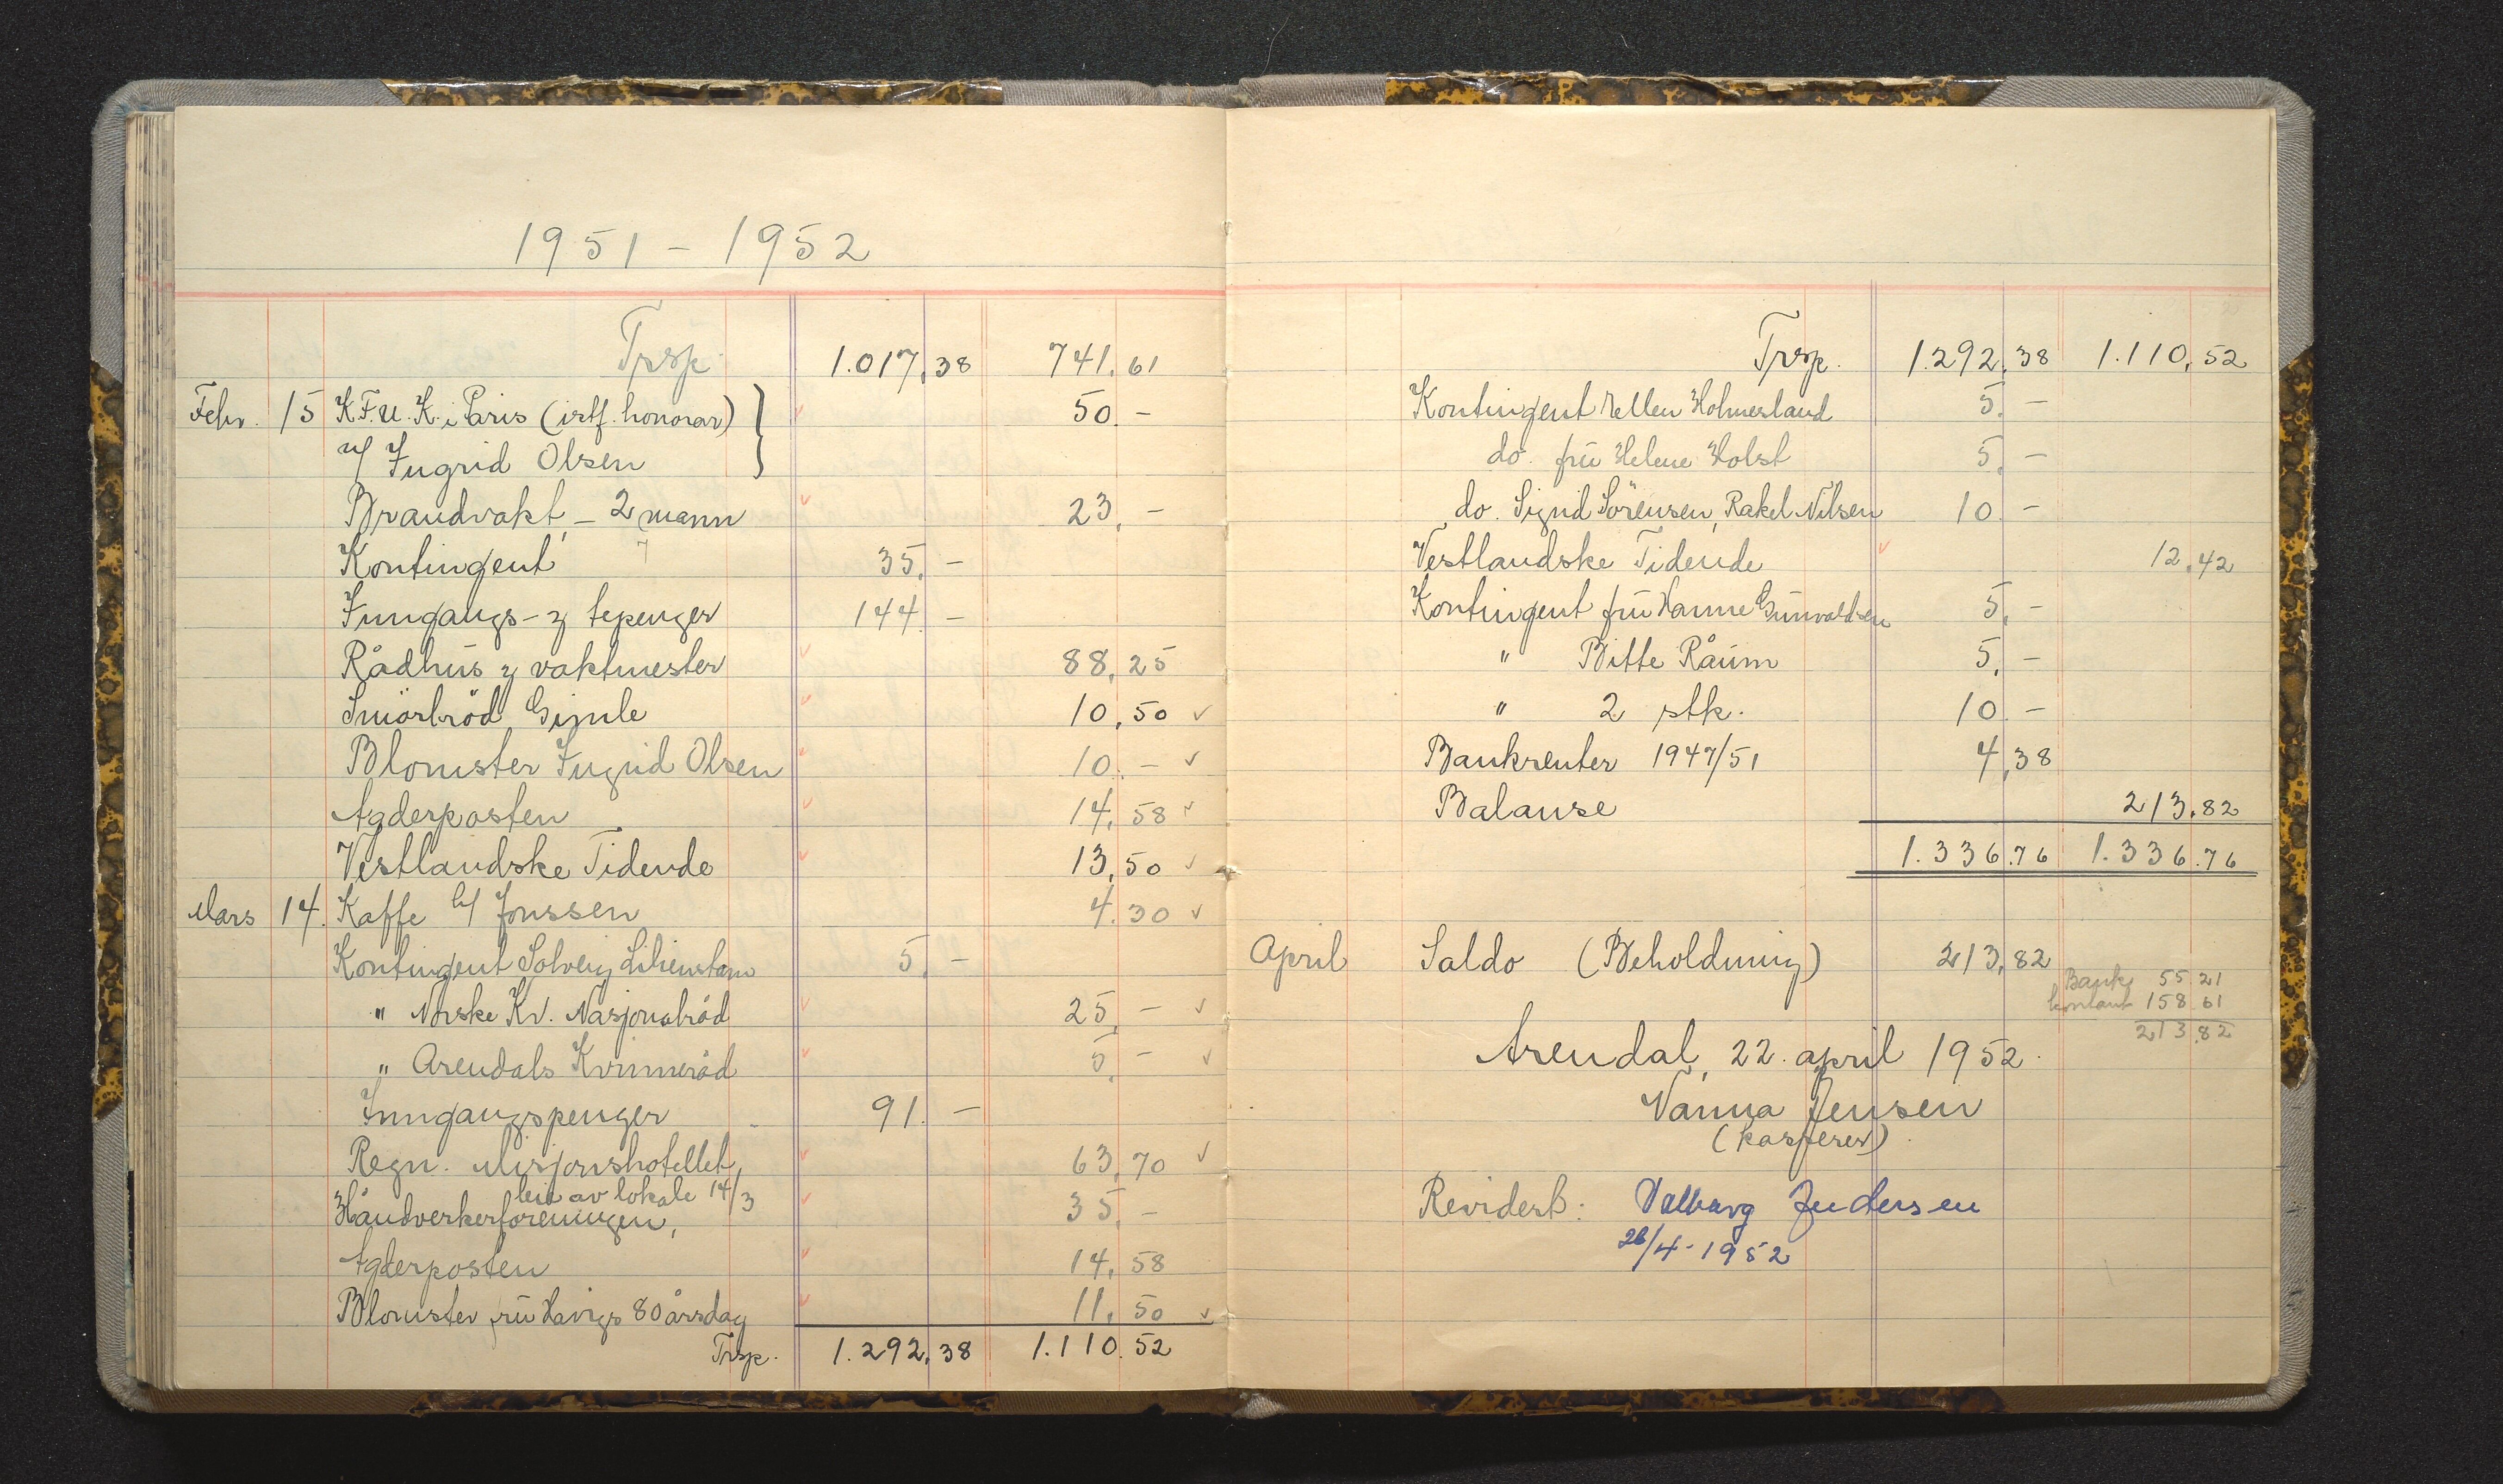 1951 - 1952
Trsp. 1.017,38 741,61
Febr. 15 K.F.U.K. i Paris (istf. honorar) 50.-
v/ Ingrid Olsen
Brandvakt - 2 mann 23,-
Kontingent 35,-
Inngangs- & tepenger 144.-
Rådhus & vaktmester 88,25
Smörbröd, Gimle 10,50 ✓
Blomster Ingrid Olsen 10.- ✓
Agderposten 14,58 ✓
Vestlandske Tidende 13,50 ✓
Mars 14. Kaffe h/ Jonssen 4.30 ✓
Kontingent Solveig Liljenstam 5,-
" Norske Kv. Nasjonalråd 25,- ✓
" Arendals Kvinneråd 5,- ✓
Inngangspenger 91.-
Regn. Misjonshotellet, 63,70 ✓
leie av lokale 14/3
Håndverkerforeningen, 35,-
Agderposten 14,58
Blomster fru Havigs 80 årsdag 11,50 ✓
Trsp. 1.292,38 1.110.52
Trsp. 1.292,38 1.110,52
Kontingent Ellen Holmesland 5.-
do. fru Helene Holst 5,-
do. Sigrid Sörensen, Rakel Nilsen 10.-
Vestlandske Tidende 12,42
Kontingent fru Hanne Gunvaldsen 5,-
" Bitte Råum 5,-
" 2 stk. 10.-
Bankrenter 1947/51 4,38
Balanse 213.82
1.336.76 1.336.76
April Saldo (Beholdning) 213,82
Bank 55 21
kontant 158 61
213.82
Arendal, 22. april 1952.
Vanna Jensen
(kasserer)
Revidert: Valborg Andersen
26/4-1952